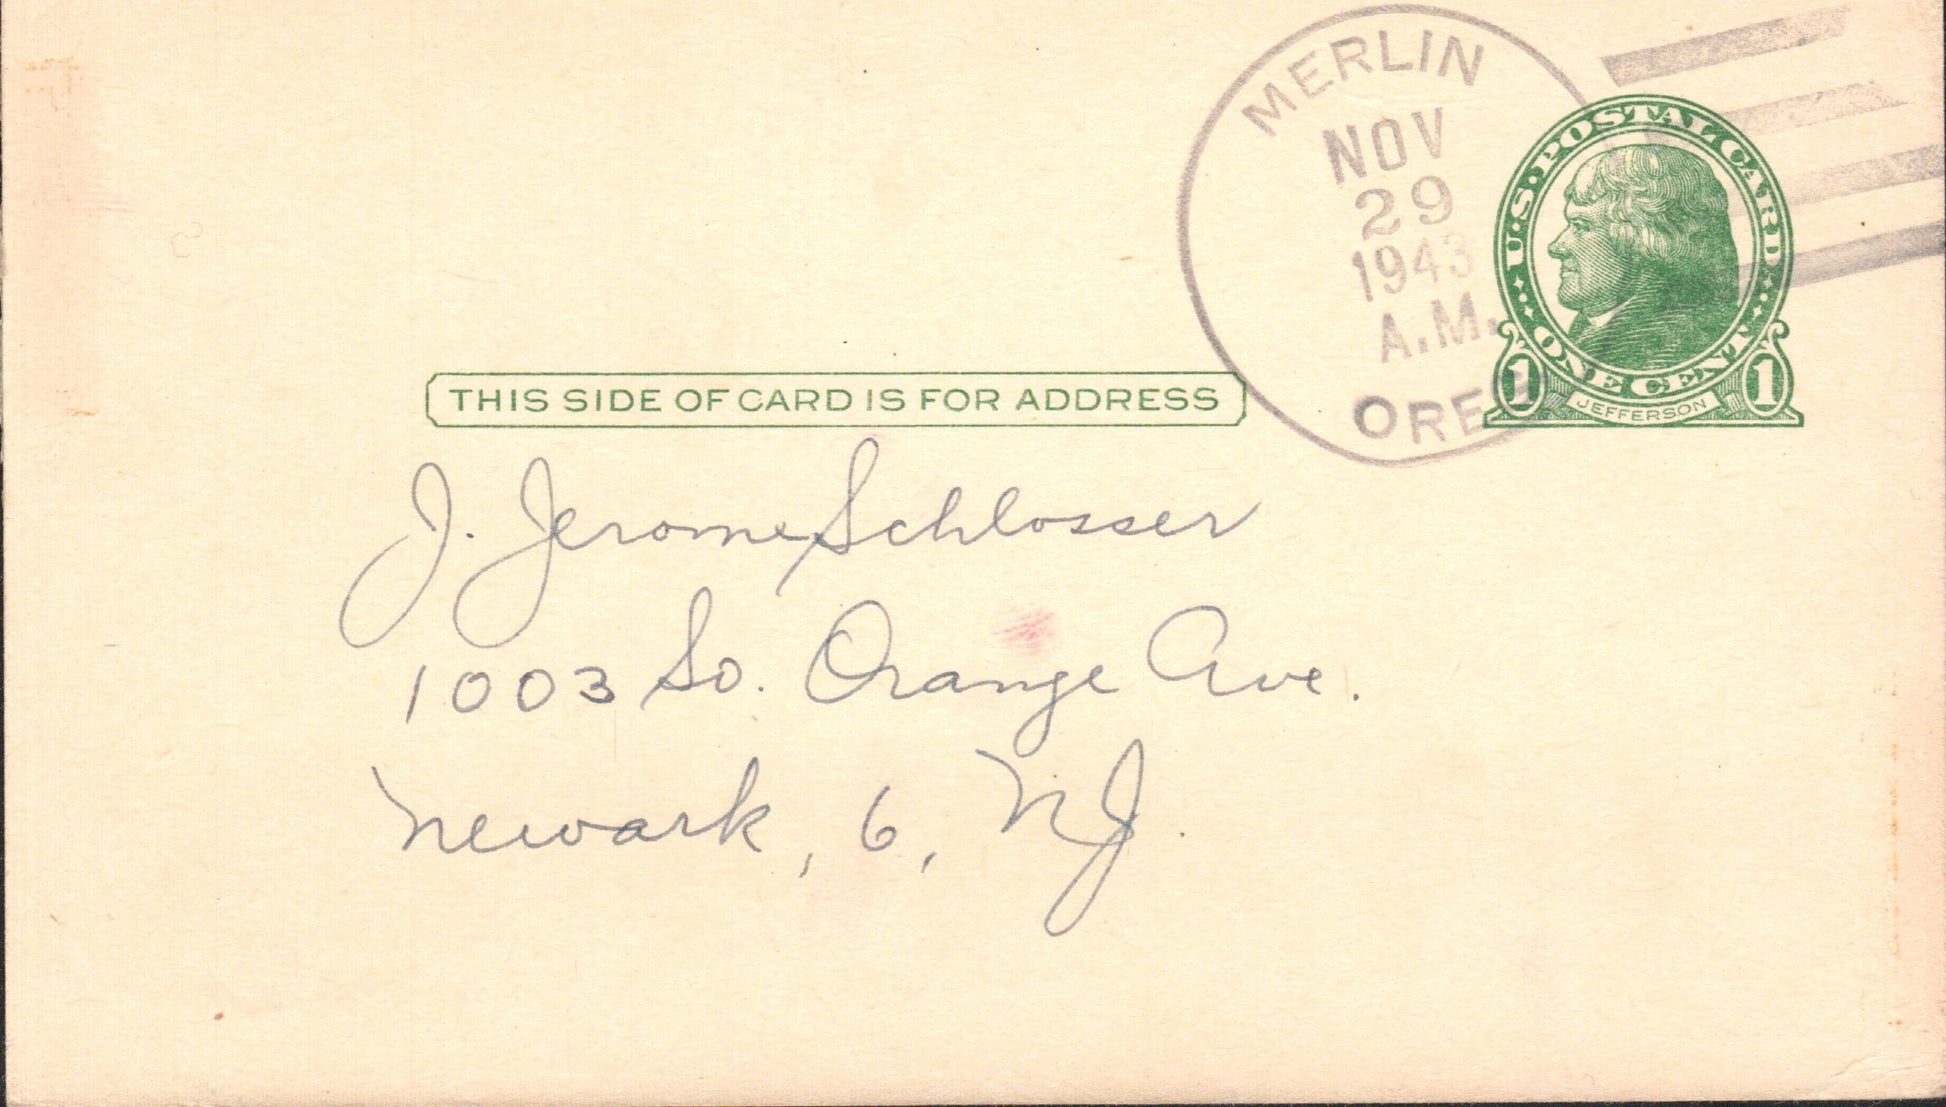 MERLIN
NOV
29
1943
A.M.
OREG
U.S. POSTAL CARD
ONE CENT
1 1
JEFFERSON
THIS SIDE OF CARD IS FOR ADDRESS
J. Jerome Schlosser
1003 So. Orange Ave.
Newark, 6, NJ.